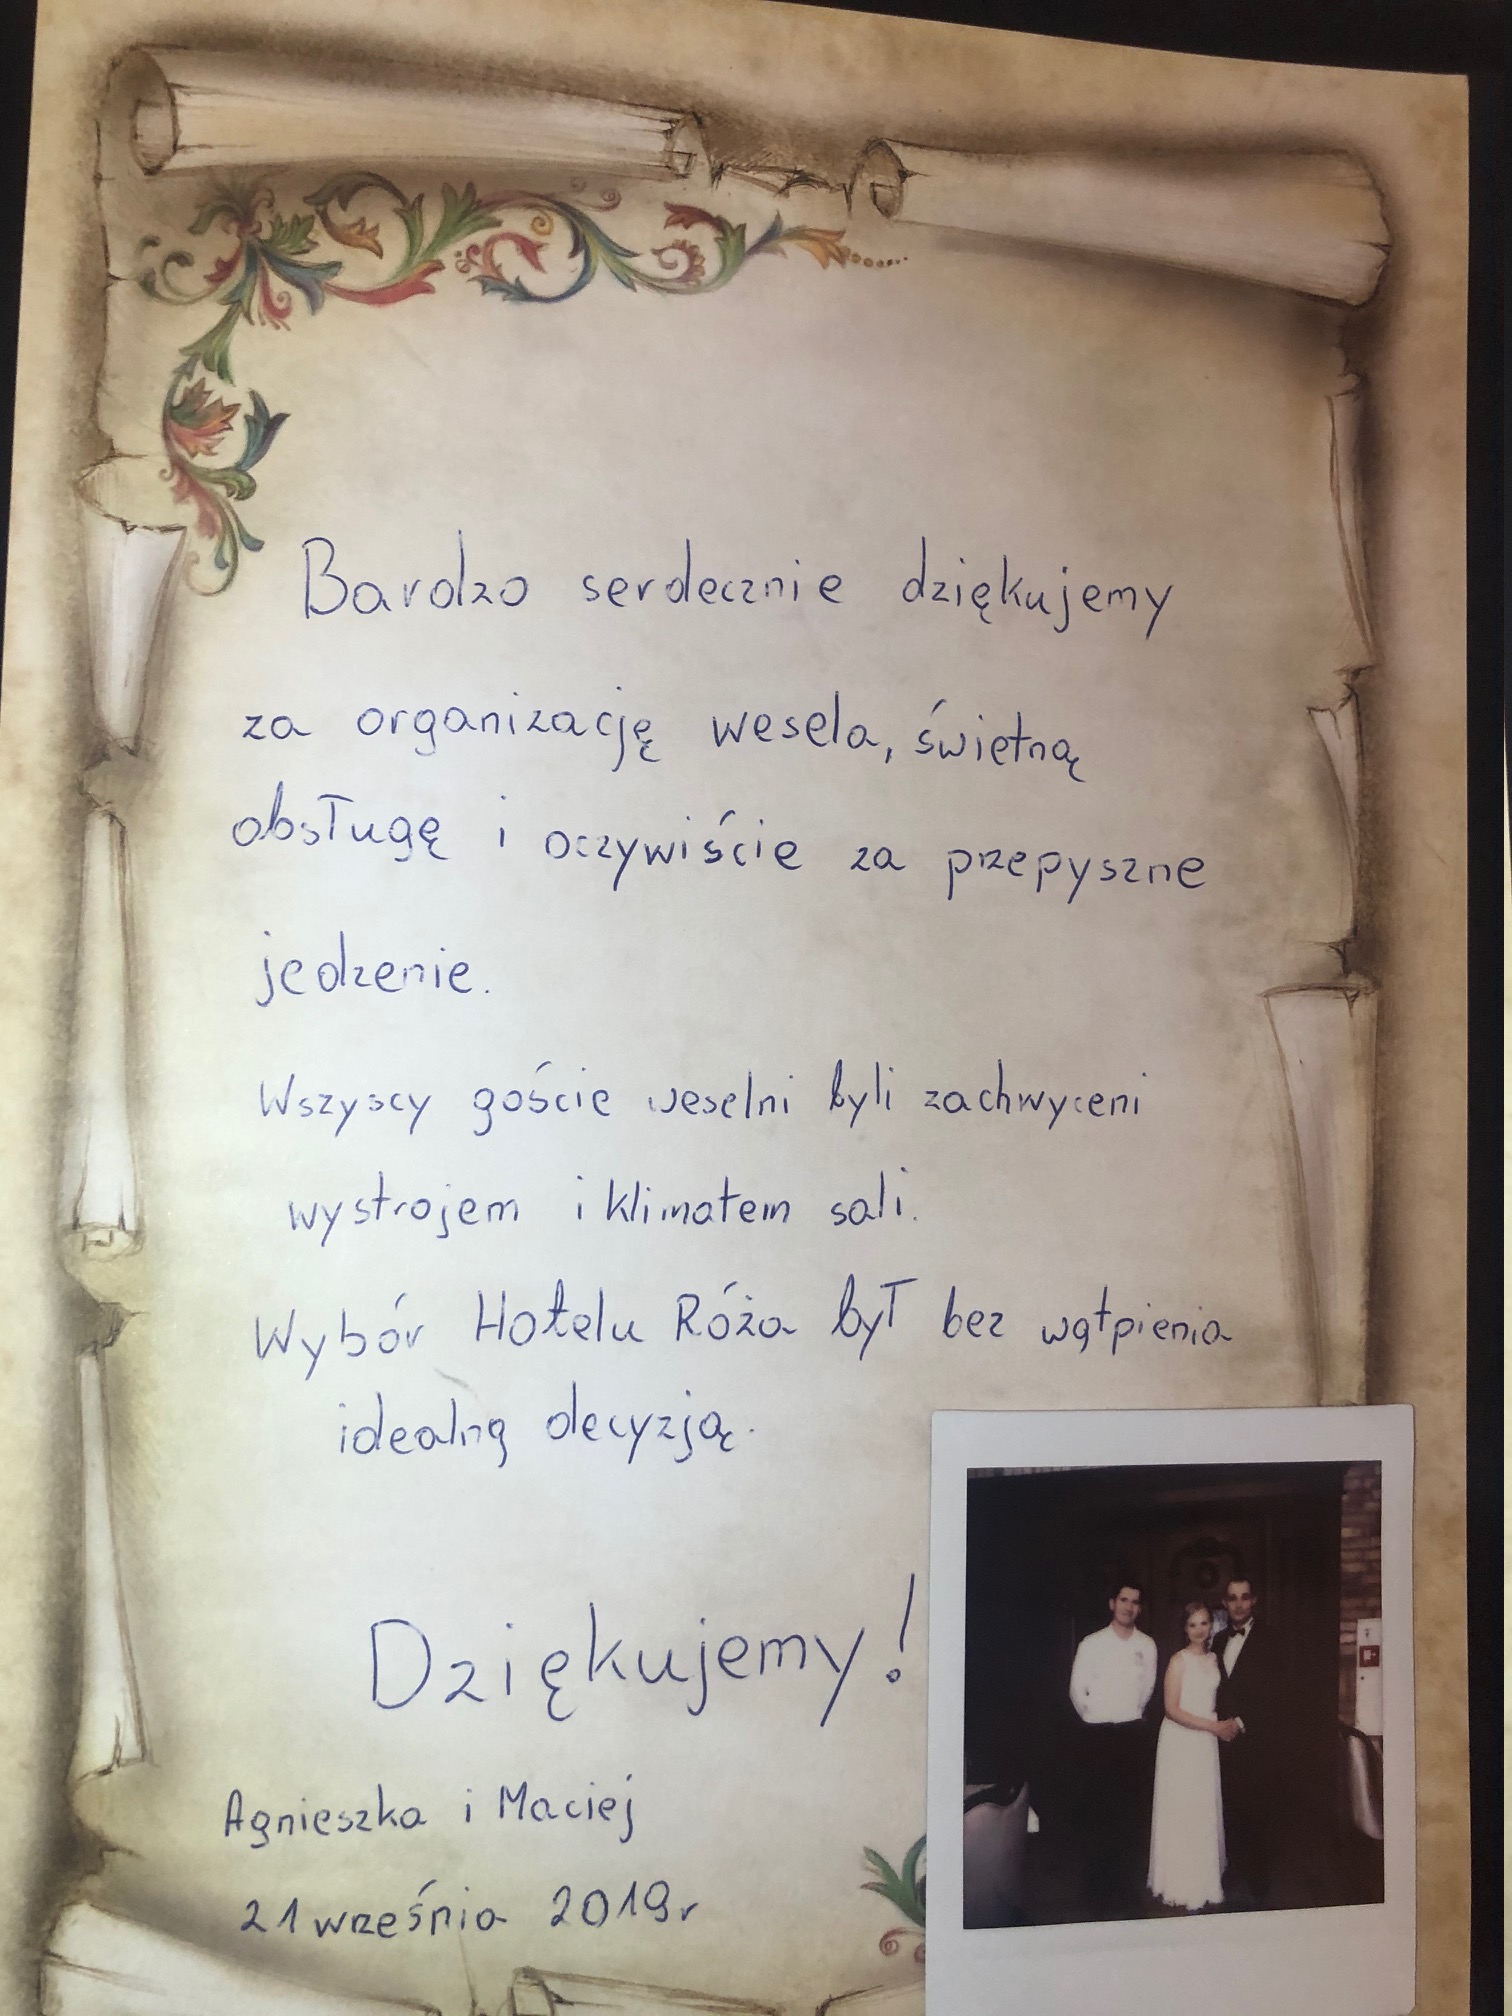 Bardzo serdecznie dziękujemy
za organizację wesela, świetną
obsługę i oczywiście za przepyszne
jedzenie.
Wszyscy goście weselni byli zachwyceni
wystrojem i klimatem sali.
Wybór Hotelu Róża był bez wątpienia
idealną decyzją.
Dziękujemy!
Agnieszka i Maciej
21 września 2019r